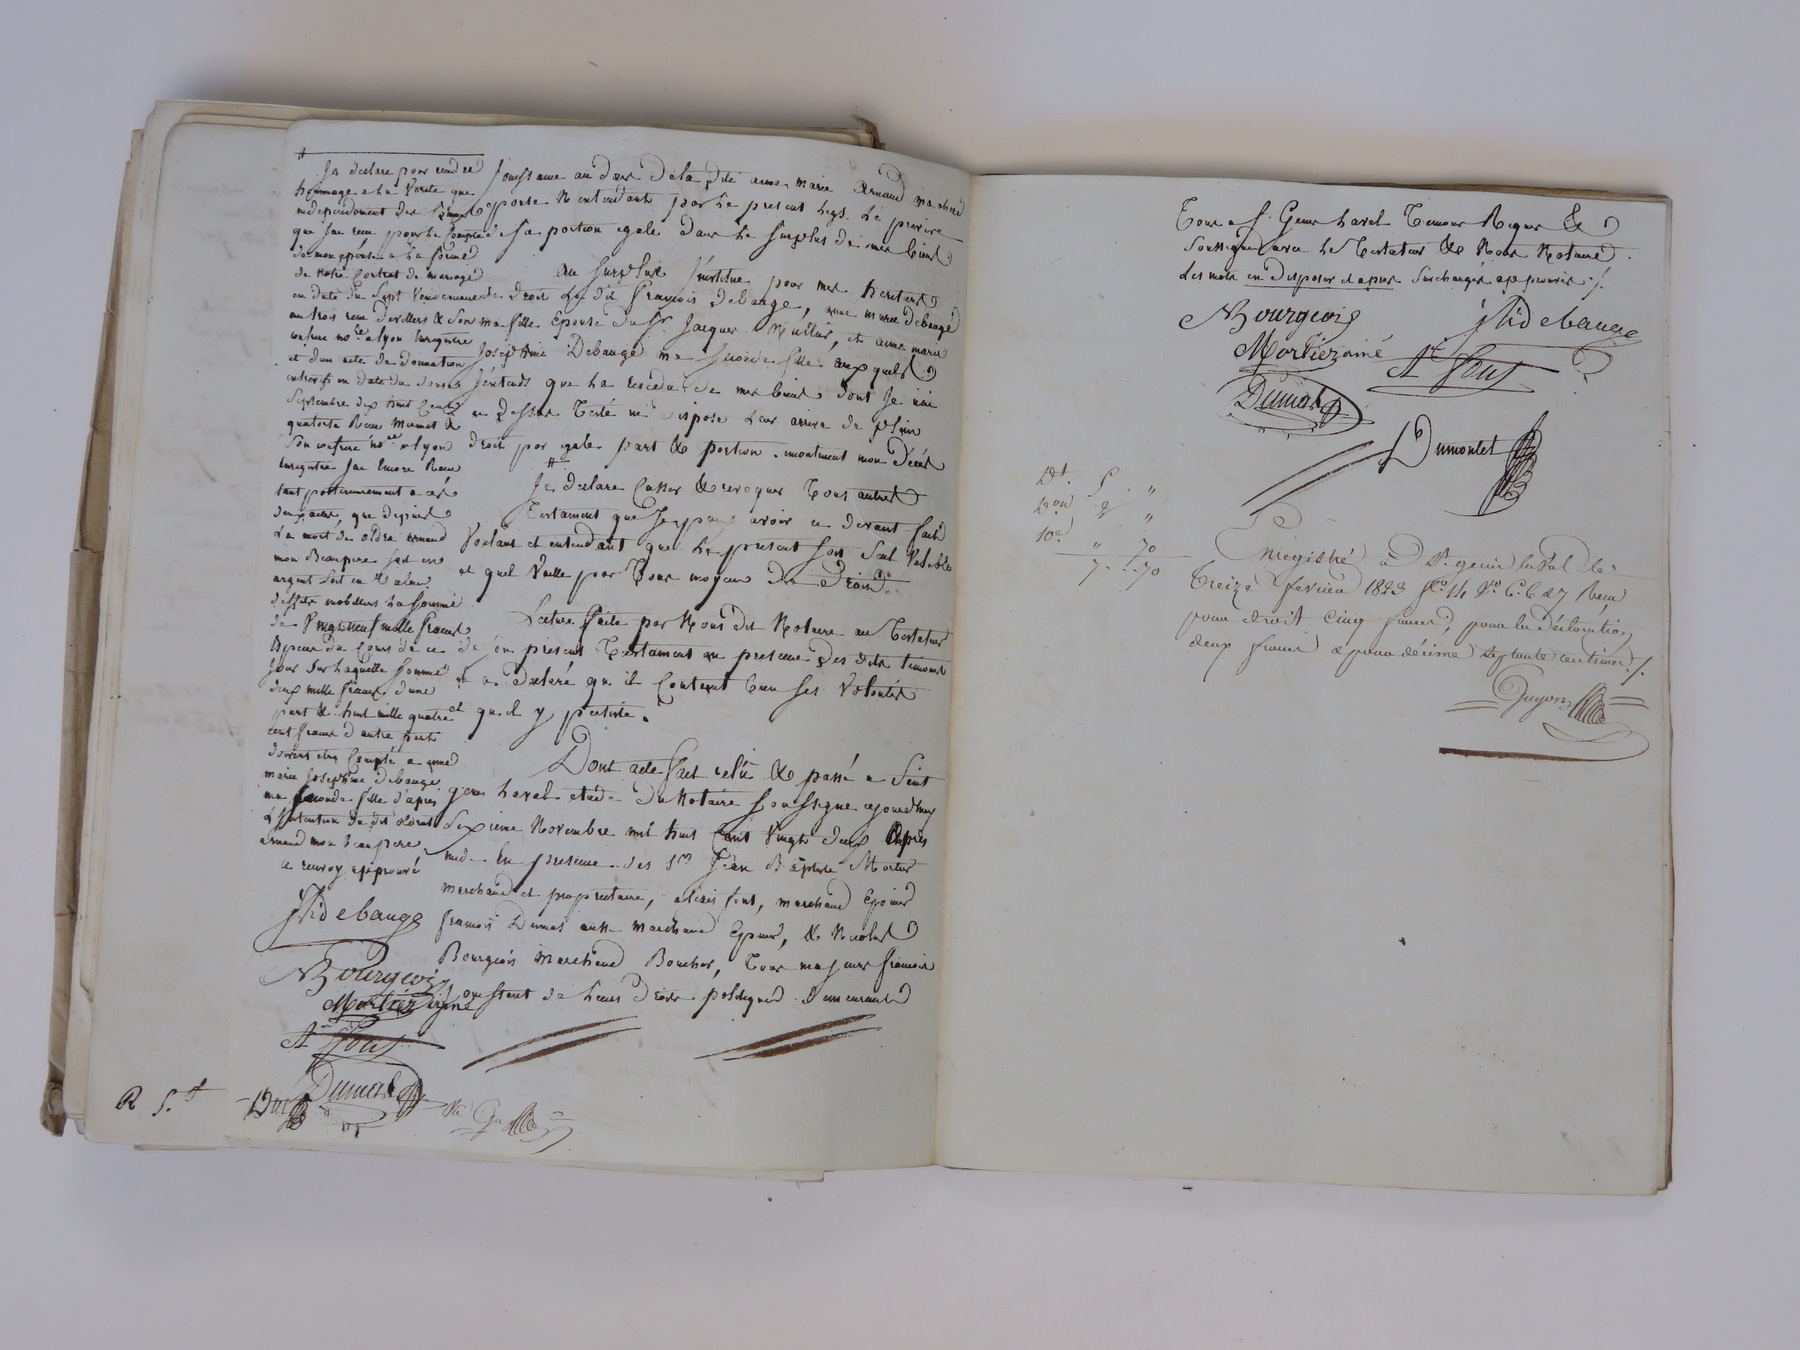 Je declare pour rendre
hommage a la verite que
independament des sommes
que J'ai recu pour le compte
de mon épouse a la forme
de notre Contrat de mariage
en date du Sept
au trois recu Devillers & Son
confrere no.re a lyon Enregistré
et d'un acte de Donnation
en date du Douze
Septembre dix huit Cent
quatorze Recu &
Son confrere no.re a lyon
Enregistré J'ai Encore Recu
tant posterieurement a ces
deux actes, que depuis
La mort de arnaud
mon Beaupere soit en
argent soit en Valeur
d'effets mobiliers La Somme
de Vingt neuf mille francs
du Cours de ce
Jour Sur Laquelle Somme
deux mille francs d'une
part & huit mille quatre
cent francs d'autre part
doivent etre Compté a anne
marie Josephine debauge
ma seconde fille d'apres
L'Intention du dit
arnaud mon beaupere
ce renvoy approuvé
debauge
NBourgeois
Mortier ainé
At font
Dumas
Jouissance au dire de la dite anne marie arnaud ma chere
épouse N'entendant par Le present Legs Le priver
de Sa portion egale dans Le Surplus de mes biens
Au Surplus J'institue pour mes heritiers
de Droit Le dit François Debauge, anne marie debauge
ma fille Epouse du Sr Jacques et anne marie
Josephine Debauge ma Seconde fille auxquels
J'entends que Le residu de mes biens dont Je n'ai
ci dessus Testé ni disposé Leur arrive de plein
droit par egale part & portion, moment mon Décés
Je declare Casser & revoquer Tous autres
Testament que Je puis avoir ci devant fait
Voulant et entendant que Le present Soit Seul Valable
et quil Vaille par Tous moyens de Droit.
Lecture faite par Nous dit Notaire au Testateur
de Son present Testament en presence des dits temoins
il a declaré qu'il Contenit bien Ses Volontés
et qu'il y persiste.
Dont acte fait relu & passé a Saint
genis Laval etude du Notaire Soussigné aujourdhuy
Sixieme Novembre mil huit Cent Vingt deux Après
midi En presence des Srs Jean Baptiste Mortier
marchand et proprietaire, alexis font, marchand Epicier
françois Dumas aussi marchand Epicier, & Nicolas
Bourgeois marchand Boucher, Tous majeurs françois
Jouissant de Leurs droits politiques demeurants
R 5.f
Tous a St Genis Laval Temoins Requis &
Soussignés avec Le Testateur & Nous Notaire.
Les mots en disposer et apres Surchargés approuvés ./.
NBourgeois debauge
Mortier ainé At font
Dumas
Dumontet
Dt. 5 "
Don 2 "
10e. " 70
7...70
Enregistré à St. genis laval le
treize fevrier 1823 fo. 14 Vo. C. 6 et 7 Recu
pour droit Cinq francs, pour la déclaration
deux francs & pour décime Septante centimes ./.
Guyon